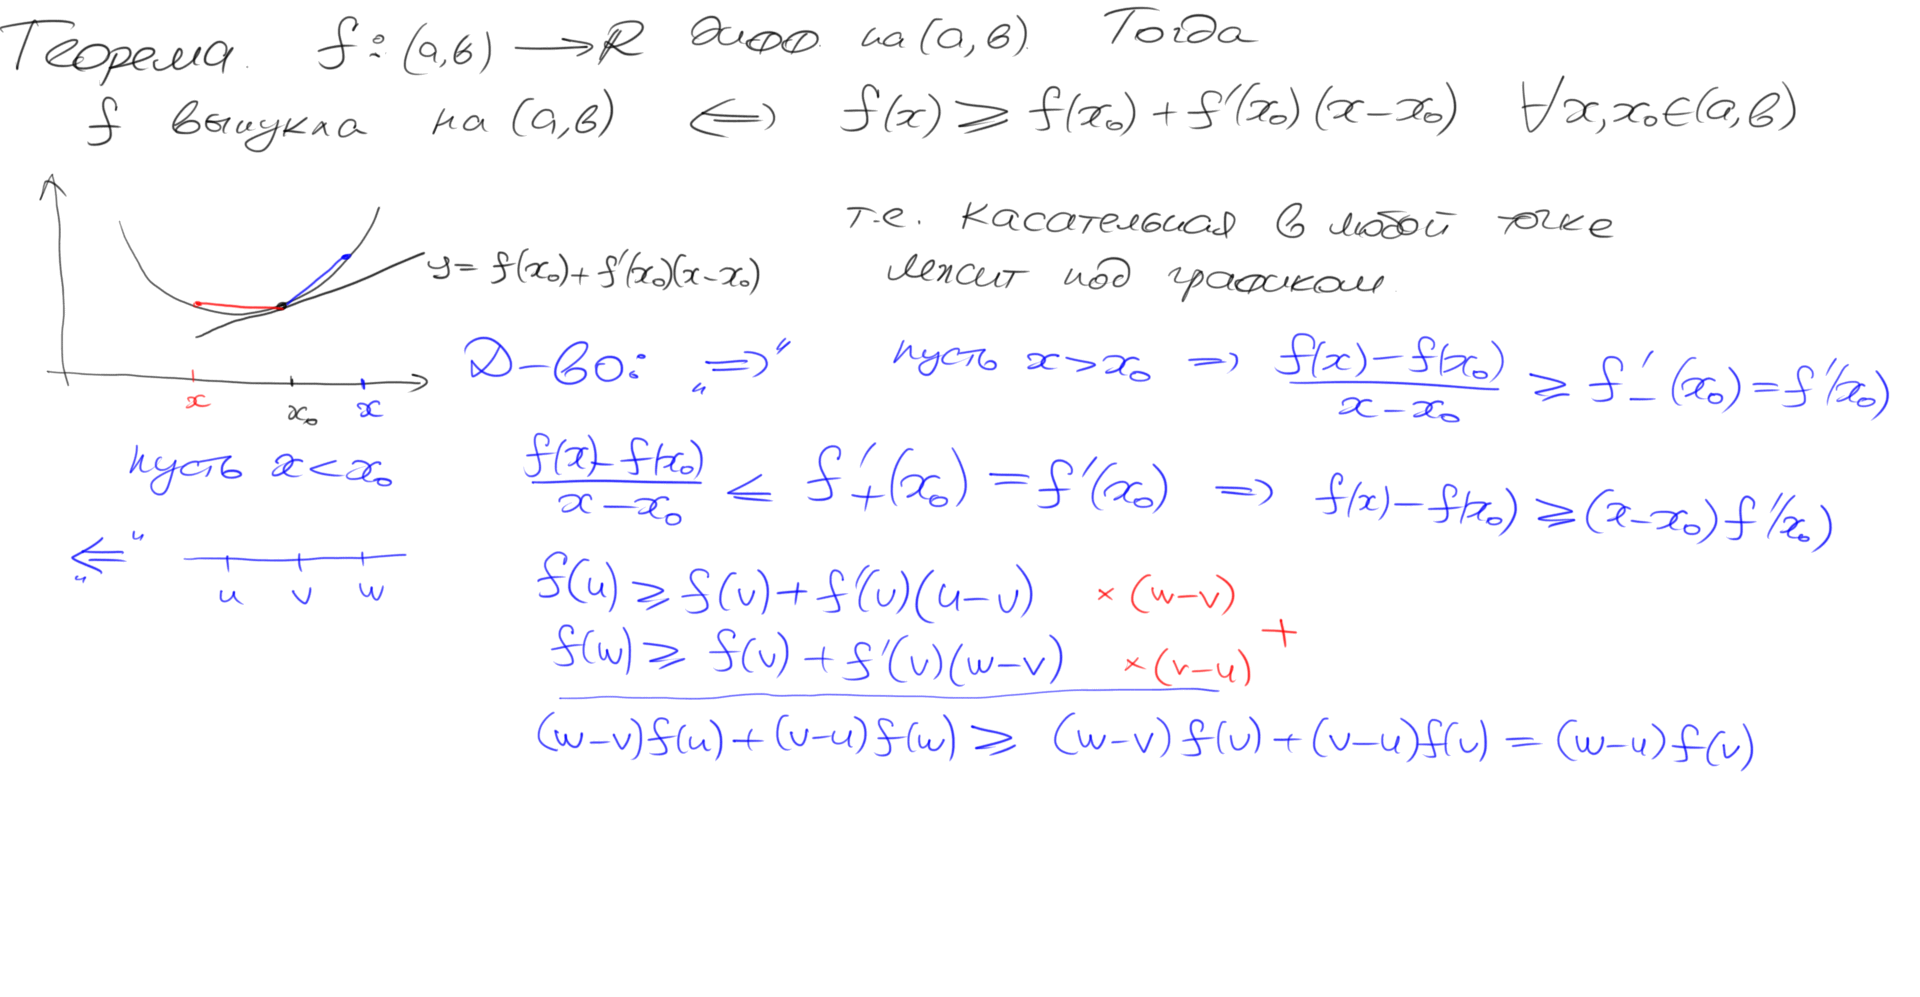 Теорема. f: (a,b) → R дифф. на (a,b). Тогда
f выпукла на (a,b) ⟺ f(x) ⩾ f(x₀) + f'(x₀)(x−x₀) ∀x,x₀∈(a,b)
т.е. касательная в любой точке
лежит под графиком.
y = f(x₀) + f'(x₀)(x−x₀)
x x₀ x
Д-во: „⇒“ пусть x > x₀ ⇒ (f(x) − f(x₀))/(x − x₀) ⩾ f'₋(x₀) = f'(x₀)
пусть x < x₀ (f(x) − f(x₀))/(x − x₀) ⩽ f'₊(x₀) = f'(x₀) ⇒ f(x) − f(x₀) ⩾ (x−x₀) f'(x₀)
„⇐“ u v w
f(u) ⩾ f(v) + f'(v)(u−v) × (w−v)
+
f(w) ⩾ f(v) + f'(v)(w−v) × (v−u)
(w−v)f(u) + (v−u)f(w) ⩾ (w−v)f(v) + (v−u)f(v) = (w−u)f(v)